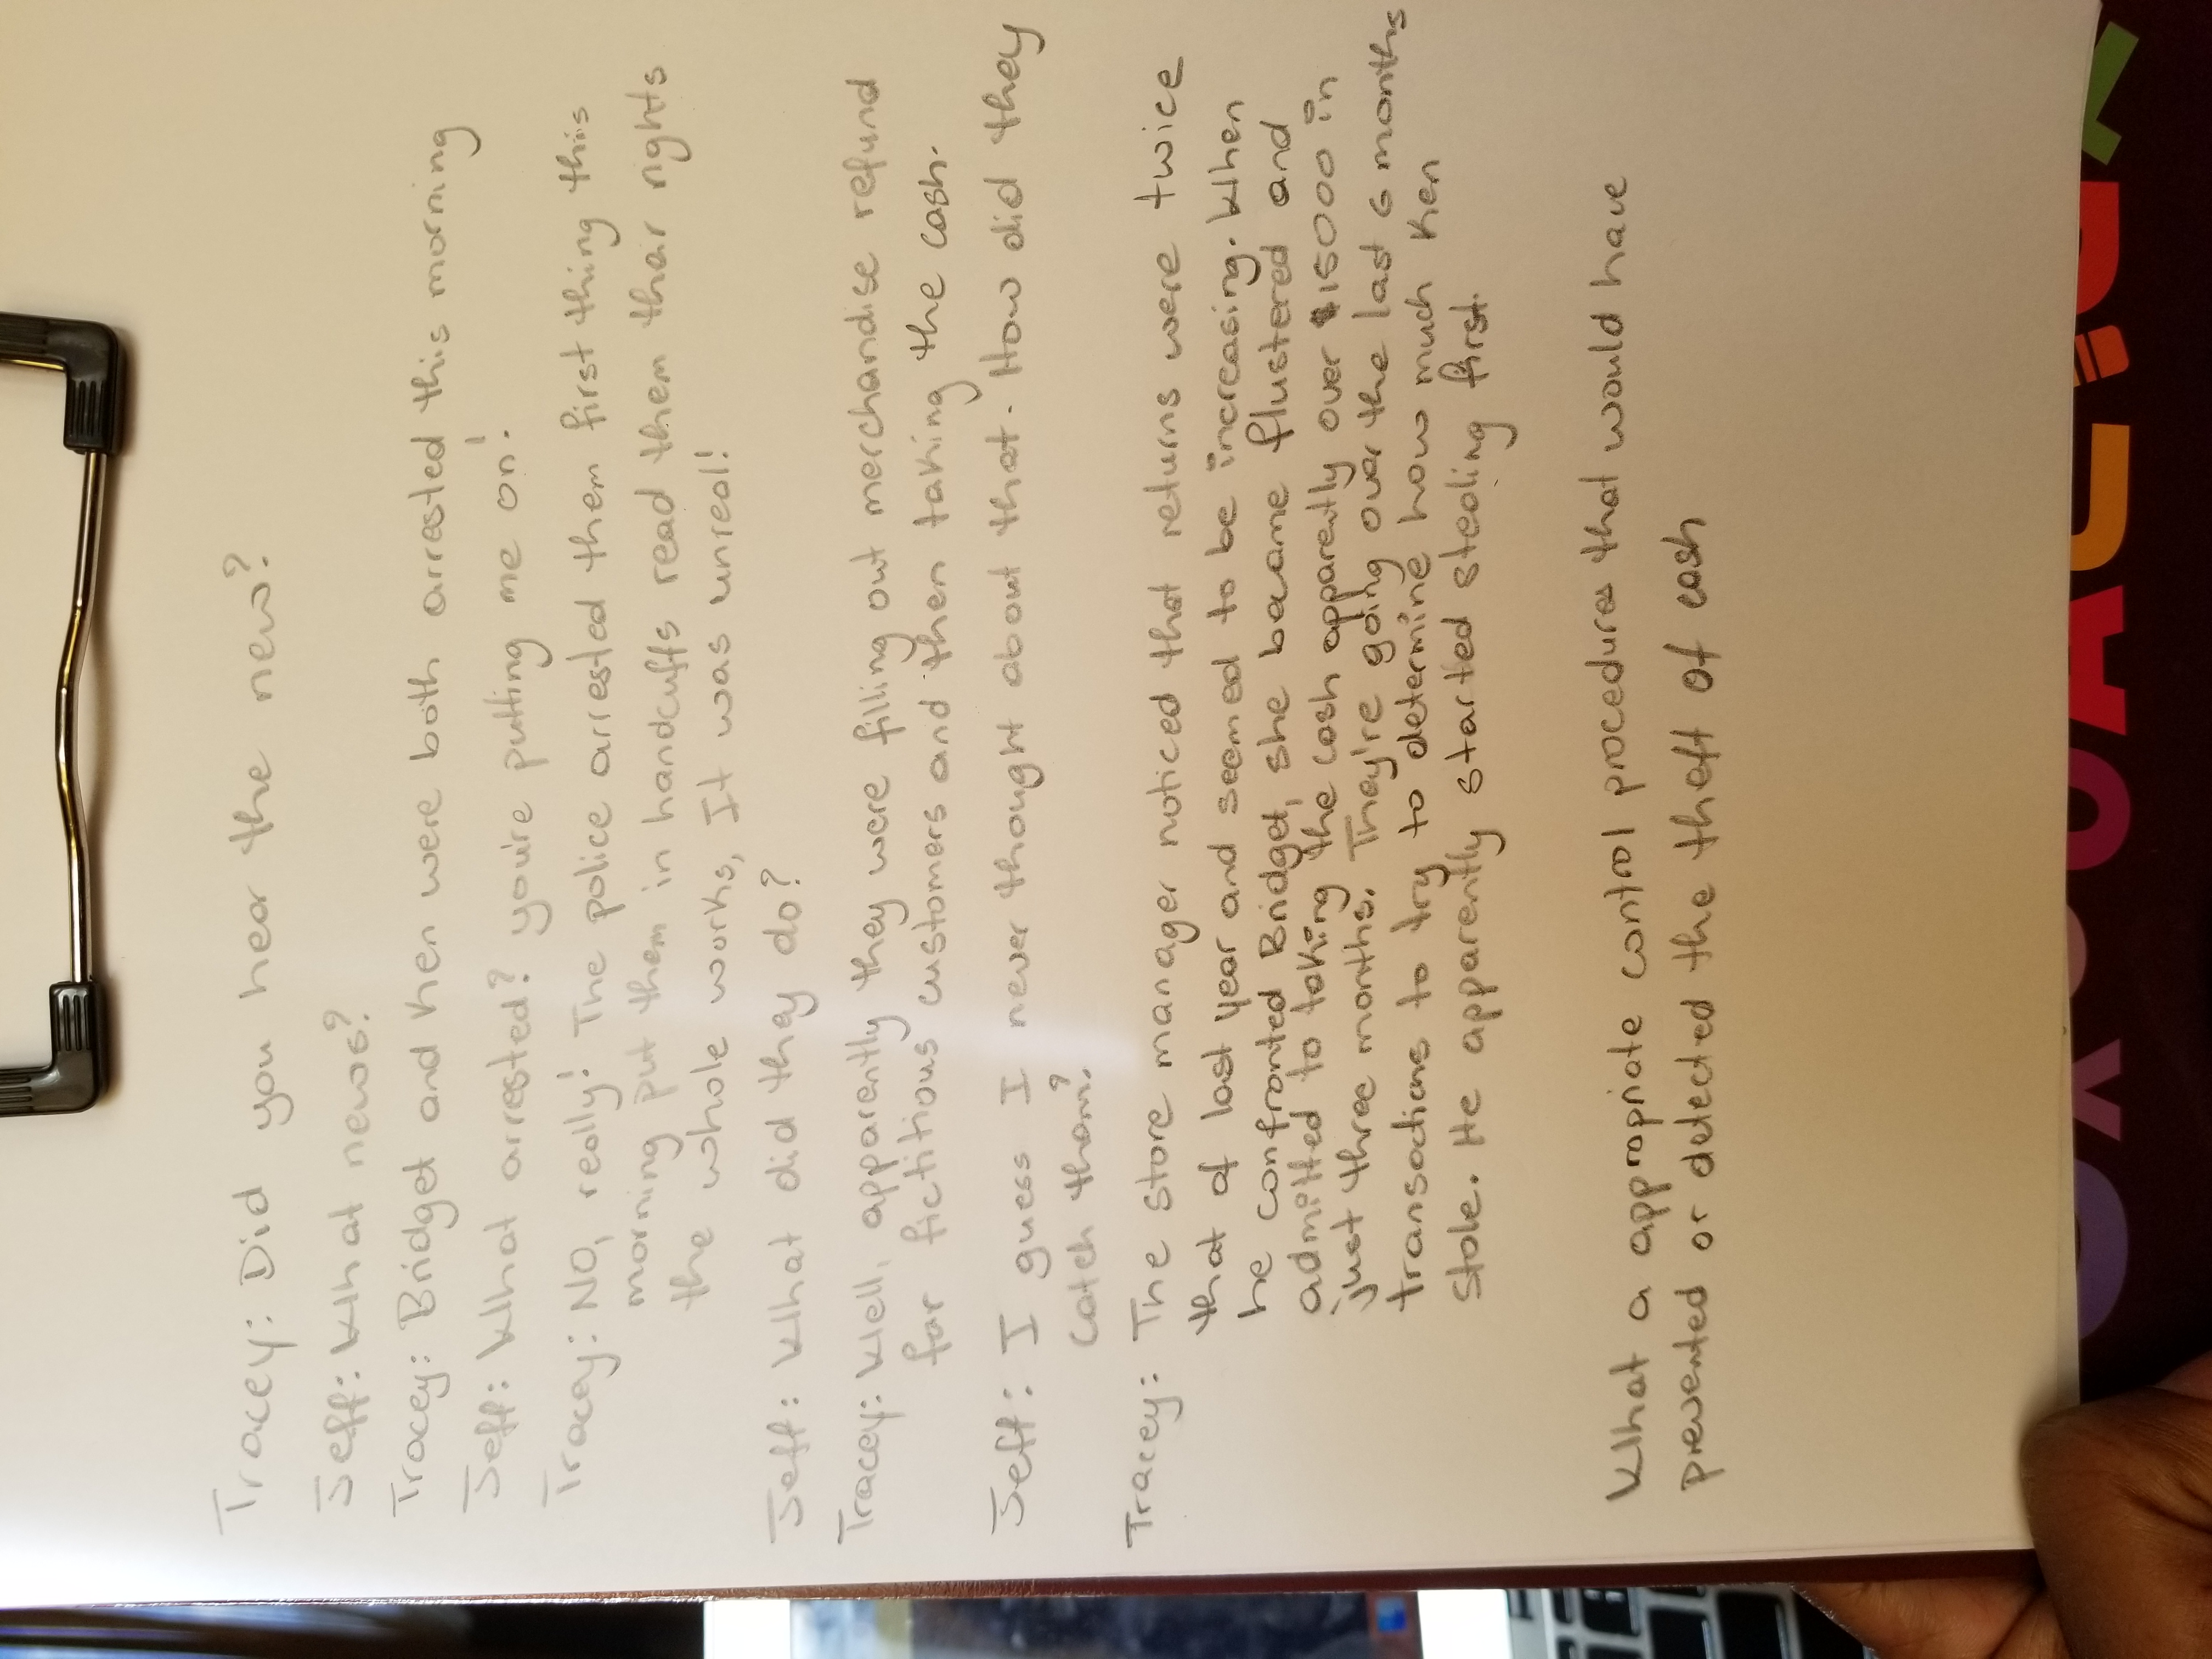 Tracey: Did you hear the new?
Jeff: What news?
Tracey: Bridget and Ken were both arrested this morning
Jeff: What arrested? you're putting me on!
Tracey: NO, really! The police arrested them first thing this
morning put them in handcuffs read them thair rights
the whole works, It was unreal!
Jeff: What did they do?
Tracey: Well, apparently they were filling out merchandise refund
for fictitious customers and then taking the cash.
Jeff: I guess I never thought about that. How did they
catch tham?
Tracey: The store manager noticed that returns were twice
that of last year and seemed to be increasing. When
he confronted Bridget, she became flustered and
admitted to taking the cash apparently over $15000 in
just three months. They're going over the last 6 months
transactions to try to determine how much Ken
stole. He apparently started stealing first.
What a appropriate control procedures that would have
prevented or detected the theft of cash